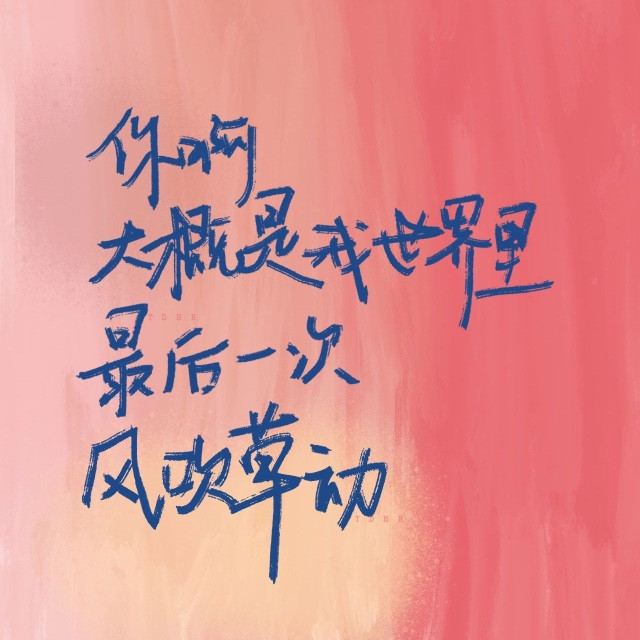 你啊
大概是我世界里
最后一次
风吹草动